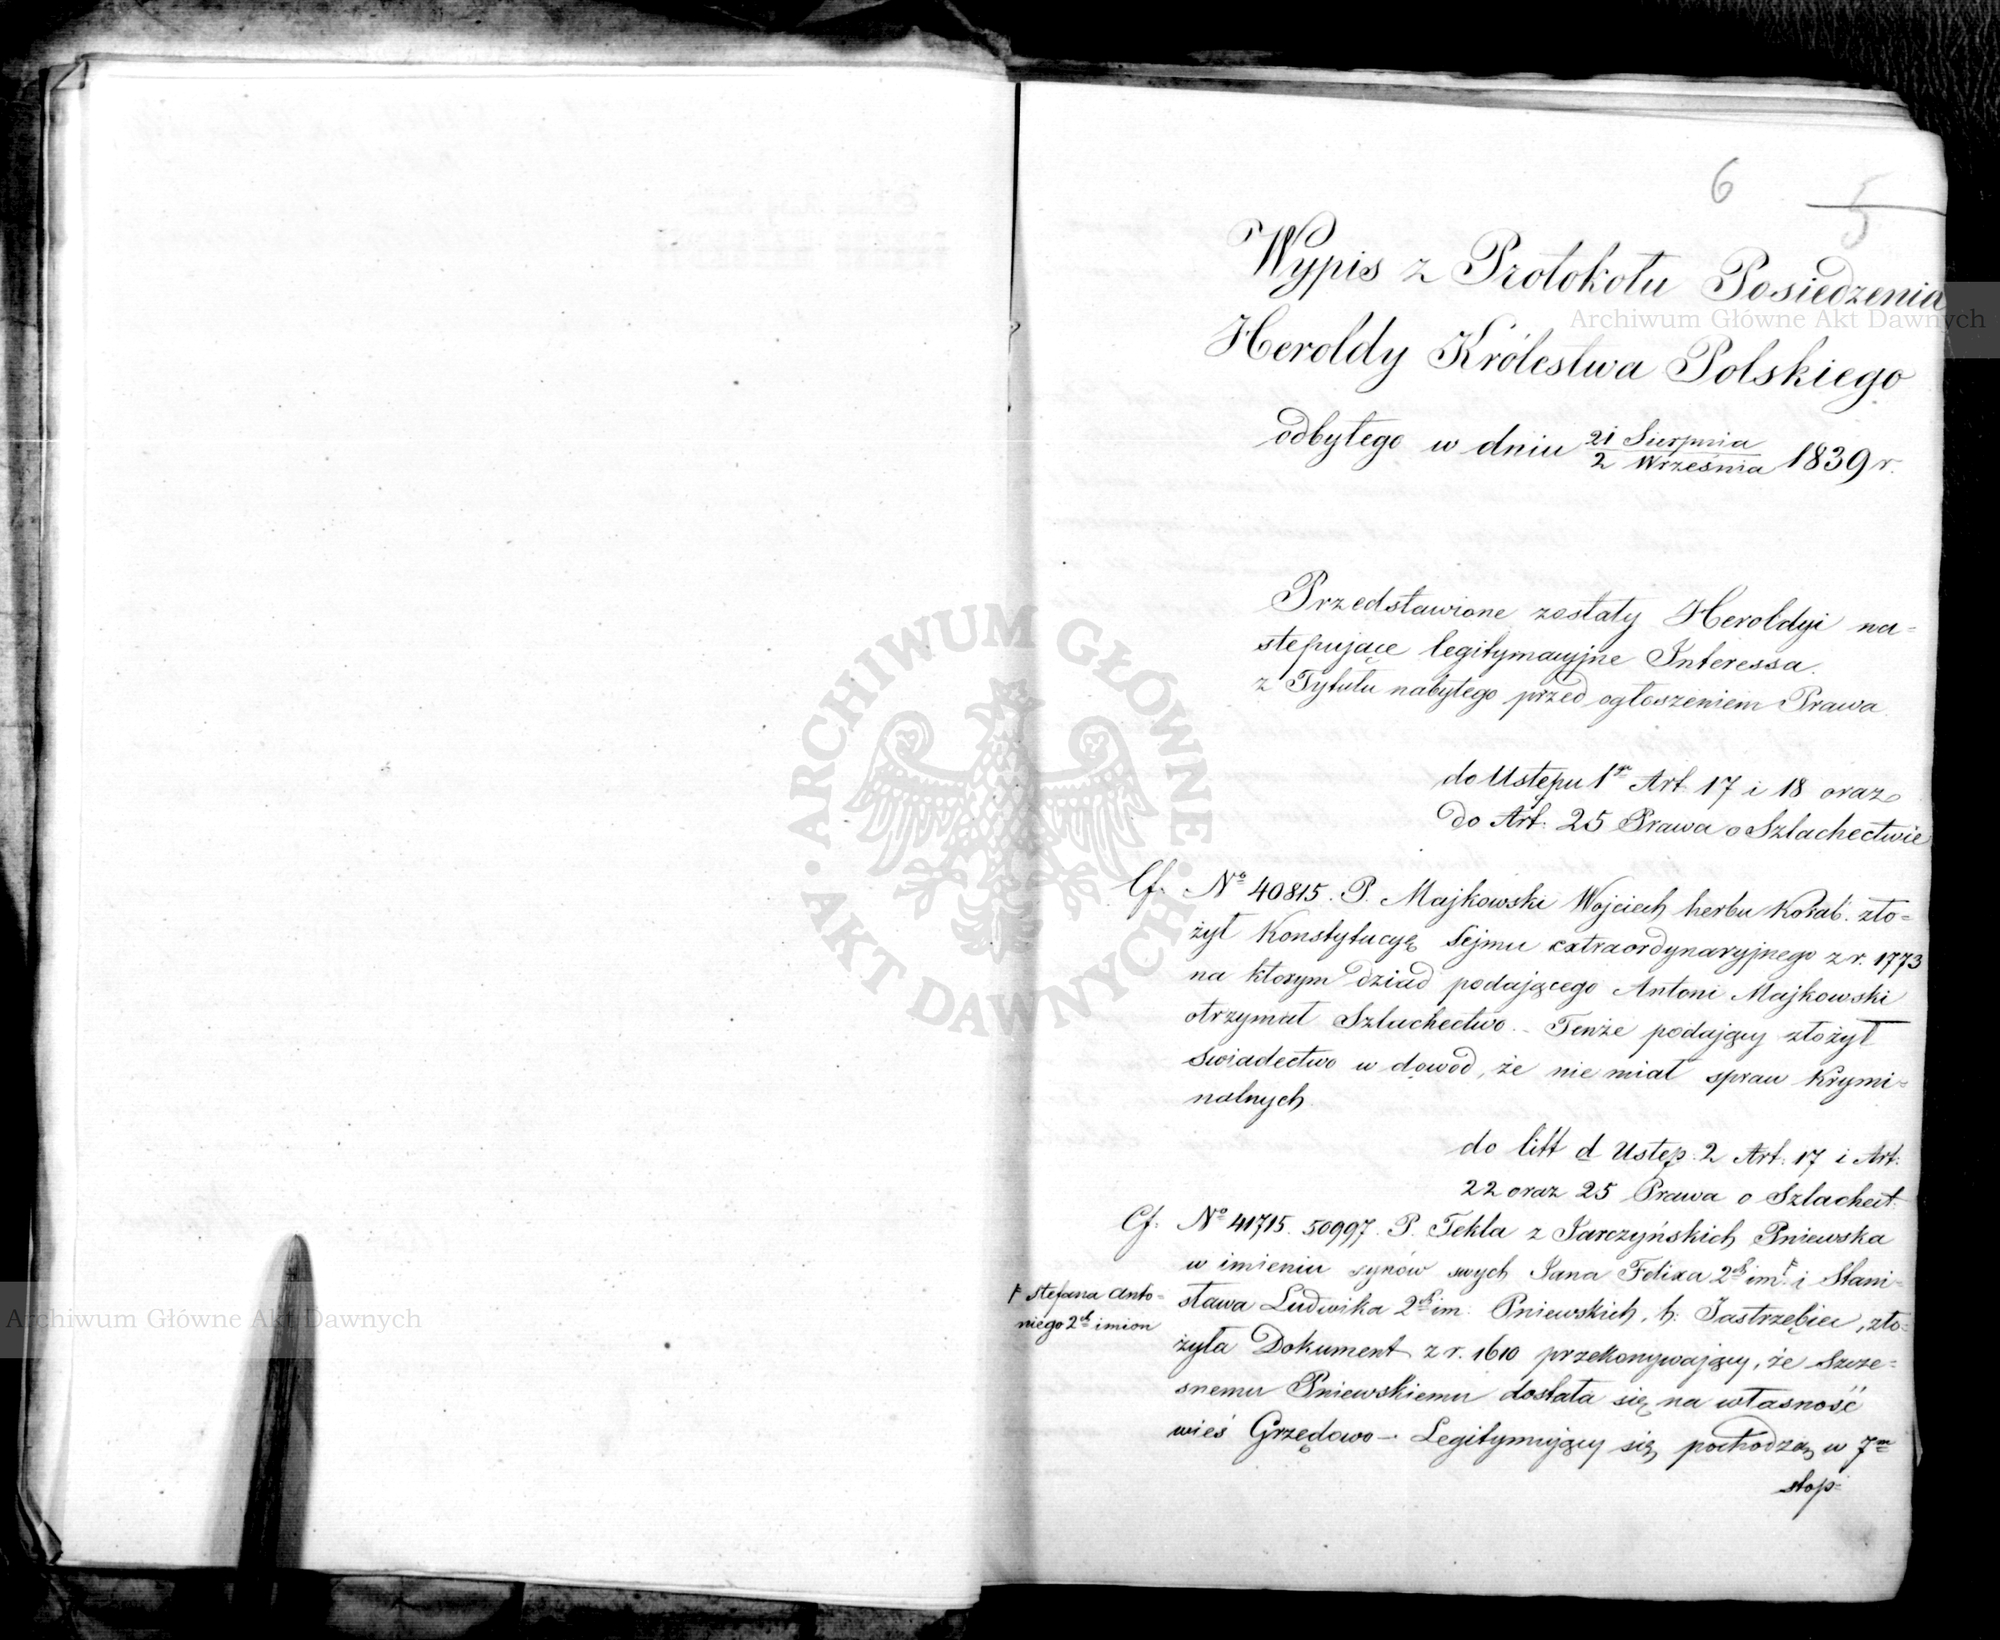 6
5
5
Wypis z Protokołu Posiedzenia
Heroldy Królestwa Polskiego
odbytego w dniu 21 Sierpnia / 2 Września 1839 r.
Przedstawione zostały Heroldyi na=
stępujące legitymacyjne Interessa.
z Tytułu nabytego przed ogłoszeniem Prawa.
do Ustępu 1go Art. 17 i 18 oraz
do Art: 25 Prawa o Szlachectwie
Cf. No 40815. P. Majkowski Wojciech herbu Korab. zło=
żył Konstytucyą Sejmu extraordynaryjnego z r. 1773
na którym dziad podającego Antoni Majkowski
otrzymał Szlachectwo. – Tenże podający złożył
świadectwo w dowód, że nie miał spraw Krymi=
nalnych.
do litt d Ustęp. 2 Art: 17 i Art:
22 oraz 25 Prawa o Szlachect.
Cf: No 41715. 50997. P. Tekla z Jarczyńskich Pniewska
w imieniu synów swych Jana Felixa 2ch im. ⊦ i Stani=
⊦ Stefana Anto=
niego 2ch imion
sława Ludwika 2ch im: Pniewskich, h: Jastrzębiec, zło=
żyła Dokument z r. 1610 przekonywający, że Szczę=
snemu Pniewskiemu dostała się na własność
wieś Grzędowo –. Legitymujący się pochodzą w 7m
stop=
Archiwum Główne Akt Dawnych
ARCHIWUM GŁÓWNE · AKT DAWNYCH ·
Archiwum Główne Akt Dawnych